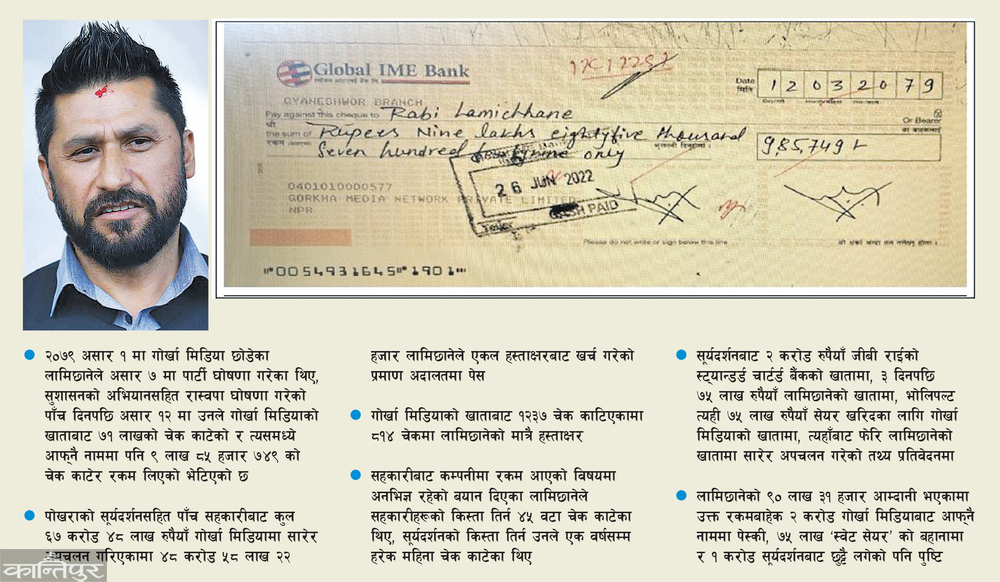 Global IME Bank
GYANESHWOR BRANCH
Date
मिति
1 2 0 3 2 0 7 9
Pay against this cheque to Rabi Lamichhane
श्री
Or Bearer
वा बाहकलाई
the sum of Rupees Nine lakhs eightyfive thousand
रकम
Seven hundred only
9,85,749/-
26 JUN 2022
PAID
0401010000577
GORKHA MEDIA NETWORK PRIVATE LIMITED
NPR
Please do not write or sign below this line
⑈0054931645⑈1901⑈
२०७९ असार १ मा गोर्खा मिडिया छोडेका
लामिछानेले असार ७ मा पार्टी घोषणा गरेका थिए,
सुशासनको अभियानसहित रास्वपा घोषणा गरेको
पाँच दिनपछि असार १२ मा उनले गोर्खा मिडियाको
खाताबाट ७१ लाखको चेक काटेको र त्यसमध्ये
आफ्नै नाममा पनि ९ लाख ८५ हजार ७४९ को
चेक काटेर रकम लिएको भेटिएको छ
पोखराको सूर्यदर्शनसहित पाँच सहकारीबाट कुल
६७ करोड ४८ लाख रुपैयाँ गोर्खा मिडियामा सारेर
अपचलन गरिएकामा ४८ करोड ५८ लाख २२
हजार लामिछानेले एकल हस्ताक्षरबाट खर्च गरेको
प्रमाण अदालतमा पेस
गोर्खा मिडियाको खाताबाट १२३७ चेक काटिएकामा
८१४ चेकमा लामिछानेको मात्रै हस्ताक्षर
सहकारीबाट कम्पनीमा रकम आएको विषयमा
अनभिज्ञ रहेको बयान दिएका लामिछानेले
सहकारीहरूको किस्ता तिर्न ४५ वटा चेक काटेका
थिए, सूर्यदर्शनको किस्ता तिर्न उनले एक वर्षसम्म
हरेक महिना चेक काटेका थिए
सूर्यदर्शनबाट २ करोड रुपैयाँ जीबी राईको
स्ट्यान्डर्ड चार्टर्ड बैंकको खातामा, ३ दिनपछि
७५ लाख रुपैयाँ लामिछानेको खातामा, भोलिपल्ट
त्यही ७५ लाख रुपैयाँ सेयर खरिदका लागि गोर्खा
मिडियाको खातामा, त्यहाँबाट फेरि लामिछानेको
खातामा सारेर अपचलन गरेको तथ्य प्रतिवेदनमा
लामिछानेको ९० लाख ३१ हजार आम्दानी भएकामा
उक्त रकमबाहेक २ करोड गोर्खा मिडियाबाट आफ्नै
नाममा पेस्की, ७५ लाख ‘स्वेट सेयर’ को बहानामा
र १ करोड सूर्यदर्शनबाट छुट्टै लगेको पनि पुष्टि
कान्तिपुर